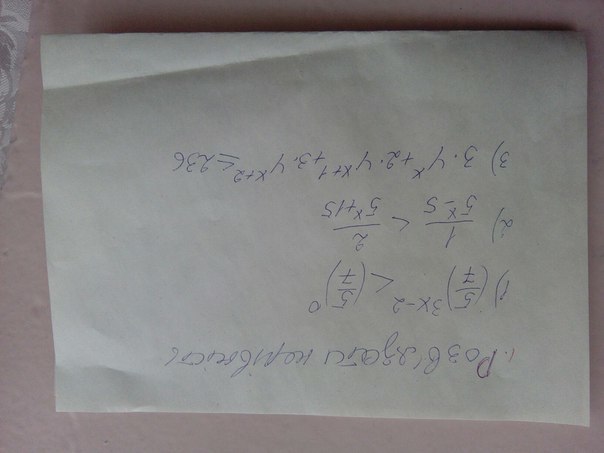 Розв'язати нерівності
1) (5/7)^(3x-2) < (5/7)^0
2) 1/(5^x-5) < 2/(5^x+15)
3) 3·4^x+2·4^(x+1)+3·4^(x+2) ≤ 236